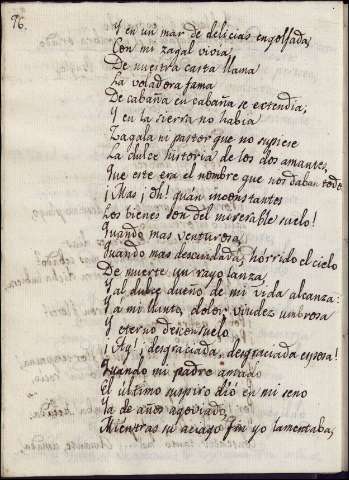 76.
Y en un mar de delicias engolfada,
Con mi zagal vivia,
De nuestra casta llama
La voladora fama
De cabaña en cabaña se extendia;
Y en la sierra no habia
Zagala ni pastor que no supiese
La dulce historia de los dos amantes,
Que este era el nombre que nos daban todos
¡Mas ¡oh! quán inconstantes
Los bienes son del miserable suelo!
Quando mas venturosa,
Quando mas descuidada, hórrido el cielo
De muerte un rayo lanza,
Y al dulce dueño de mi vida alcanza:
Y á mi llanto, dolor, viudez umbrosa
Y eterno desconsuelo.
¡Ay! ¡desgraciada, desgraciada esposa!
Quando mi padre amado
El último suspiro dió en mi seno
Ya de años agoviado,
Mientras su aciago fin yo lamentaba,